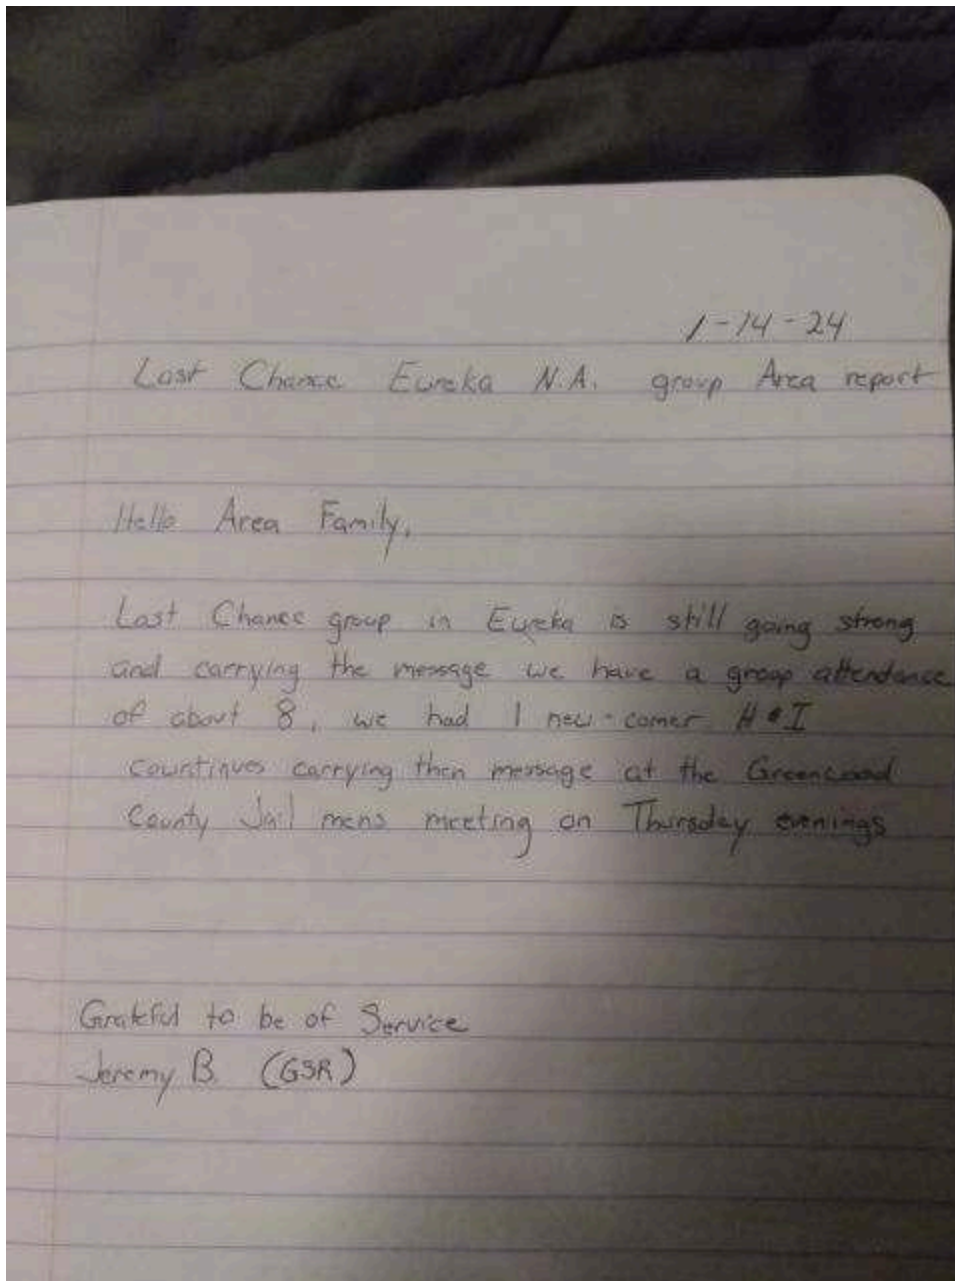 1-14-24
Last Chance Eureka N.A. group Area report
Hello Area Family,
Last Chance group in Eureka is still going strong
and carrying the message we have a group attendance
of about 8, we had 1 new-comer H&I
countinues carrying then message at the Greenwood
County Jail mens meeting on Thursday evenings
Grateful to be of Service
Jeremy B. (GSR)